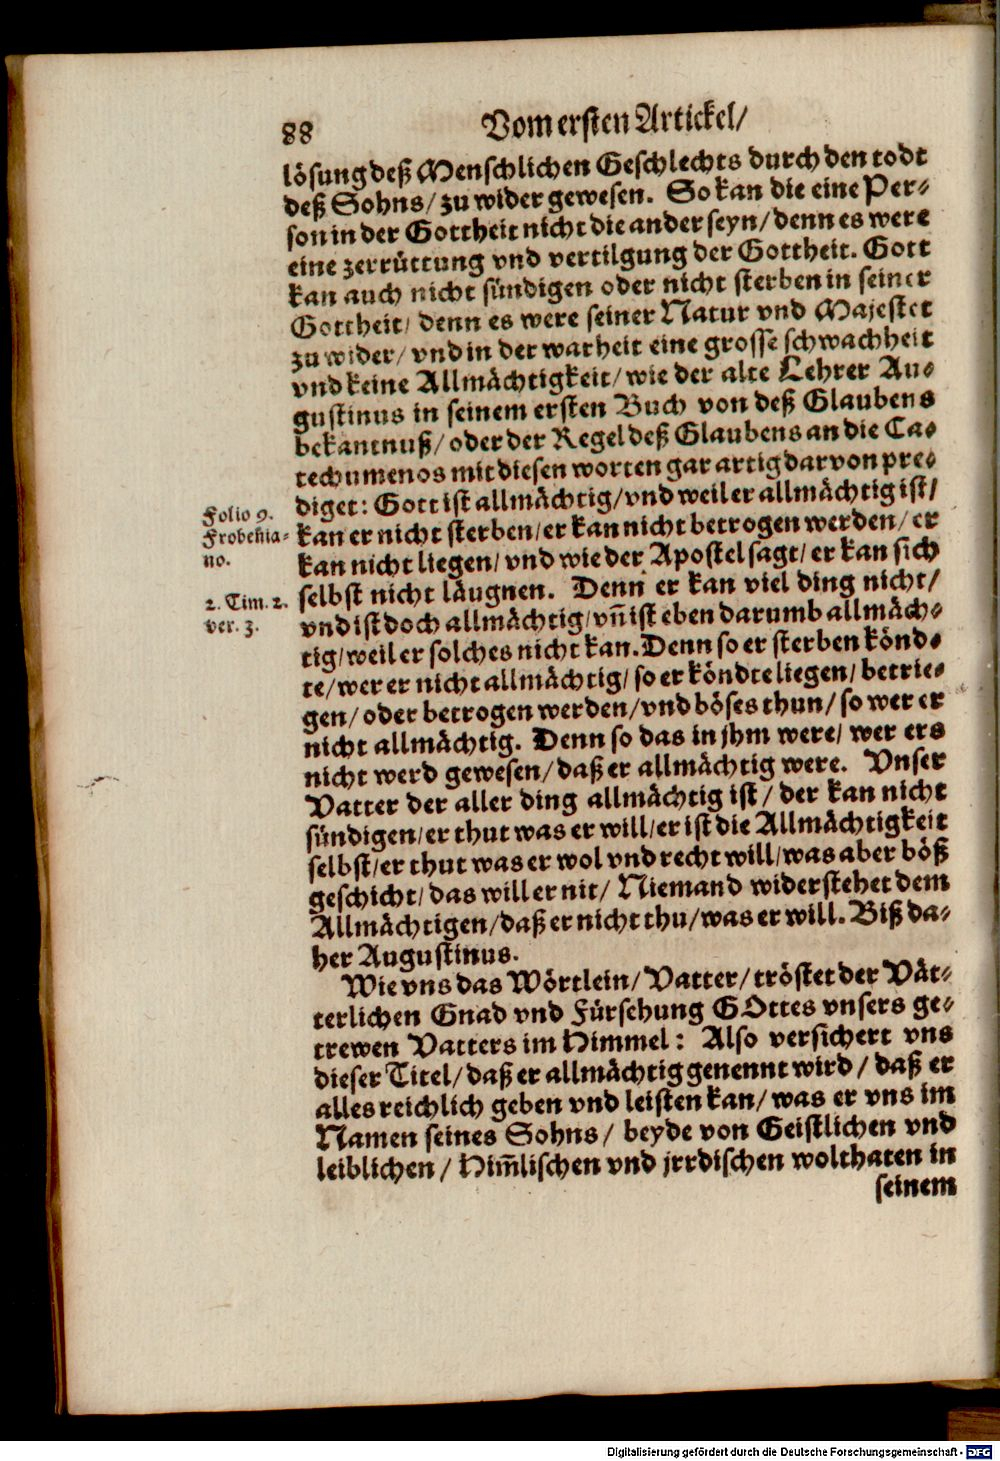 88 Vom ersten Artickel/
lösung deß Menschlichen Geschlechts durch den todt
deß Sohns/ zu wider gewesen. So kan die eine Per-
son in der Gottheit nicht die ander seyn/ denn es were
eine zerrüttung vnd vertilgung der Gottheit. Gott
kan auch nicht sündigen oder nicht sterben in seiner
Gottheit/ denn es were seiner Natur vnd Majestet
zu wider/ vnd in der warheit eine grosse schwachheit
vnd keine Allmächtigkeit/ wie der alte Lehrer Au-
gustinus in seinem ersten Buch von deß Glaubens
bekantnuß/ oder der Regel deß Glaubens an die Ca-
techumenos mit diesen worten gar artig darvon pre-
diget: Gott ist allmächtig/ vnd weil er allmächtig ist/
kan er nicht sterben/ er kan nicht betrogen werden/ er
kan nicht liegen/ vnd wie der Apostel sagt/ er kan sich
selbst nicht läugnen. Denn er kan viel ding nicht/
vnd ist doch allmächtig/ vñ ist eben darumb allmäch-
tig/ weil er solches nicht kan. Denn so er sterben könd-
te/ wer er nicht allmächtig/ so er köndte liegen/ betrie-
gen/ oder betrogen werden/ vnd böses thun/ so wer er
nicht allmächtig. Denn so das in jhm were/ wer ers
nicht werd gewesen/ daß er allmächtig were. Vnser
Vatter der aller ding allmächtig ist/ der kan nicht
sündigen/ er thut was er will/ er ist die Allmächtigkeit
selbst/ er thut was er wol vnd recht will/ was aber böß
geschicht/ das will er nit/ Niemand widerstehet dem
Allmächtigen/ daß er nicht thu/ was er will. Biß da-
her Augustinus.
Wie vns das Wörtlein/ Vatter/ tröstet der Vät-
terlichen Gnad vnd Fürsehung GOttes vnsers ge-
trewen Vatters im Himmel: Also versichert vns
dieser Titel/ daß er allmächtig genennt wird/ daß er
alles reichlich geben vnd leisten kan/ was er vns im
Namen seines Sohns/ beyde von Geistlichen vnd
leiblichen/ Him̃lischen vnd jrrdischen wolthaten in
seinem
Folio 9.
Frobenia-
no.
2. Tim. 2.
ver. 3.
Digitalisierung gefördert durch die Deutsche Forschungsgemeinschaft - DFG